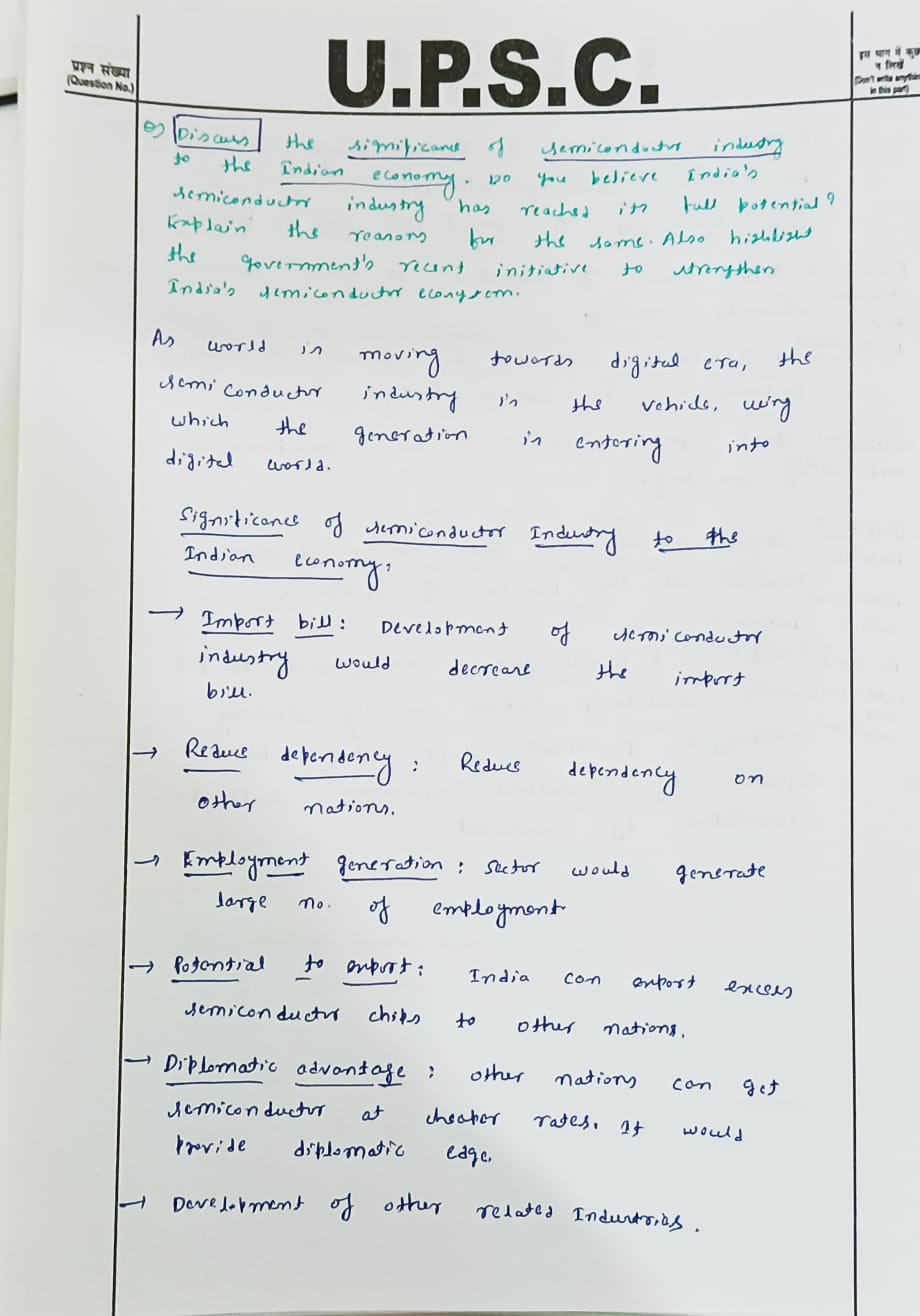 U.P.S.C.
प्रश्न संख्या
(Question No.)
इस भाग में कुछ
न लिखें
(Don't write anythin
in this part)
e) Discuss the significance of semiconductor industry
to the Indian economy. Do you believe India's
semiconductor industry has reached its full potential?
Explain the reasons for the same. Also highlight
the government's recent initiative to strengthen
India's semiconductor ecosystem.
As world is moving towards digital era, the
semiconductor industry is the vehicle, using
which the generation is entering into
digital world.
Significance of semiconductor Industry to the
Indian economy:
→ Import bill: Development of semiconductor
industry would decrease the import
bill.
→ Reduce dependency: Reduce dependency on
other nations.
→ Employment generation: sector would generate
large no. of employment
→ Potential to export: India can export excess
semiconductor chips to other nations.
→ Diplomatic advantage: other nations can get
semiconductor at cheaper rates. It would
provide diplomatic edge.
→ Development of other related Industries.